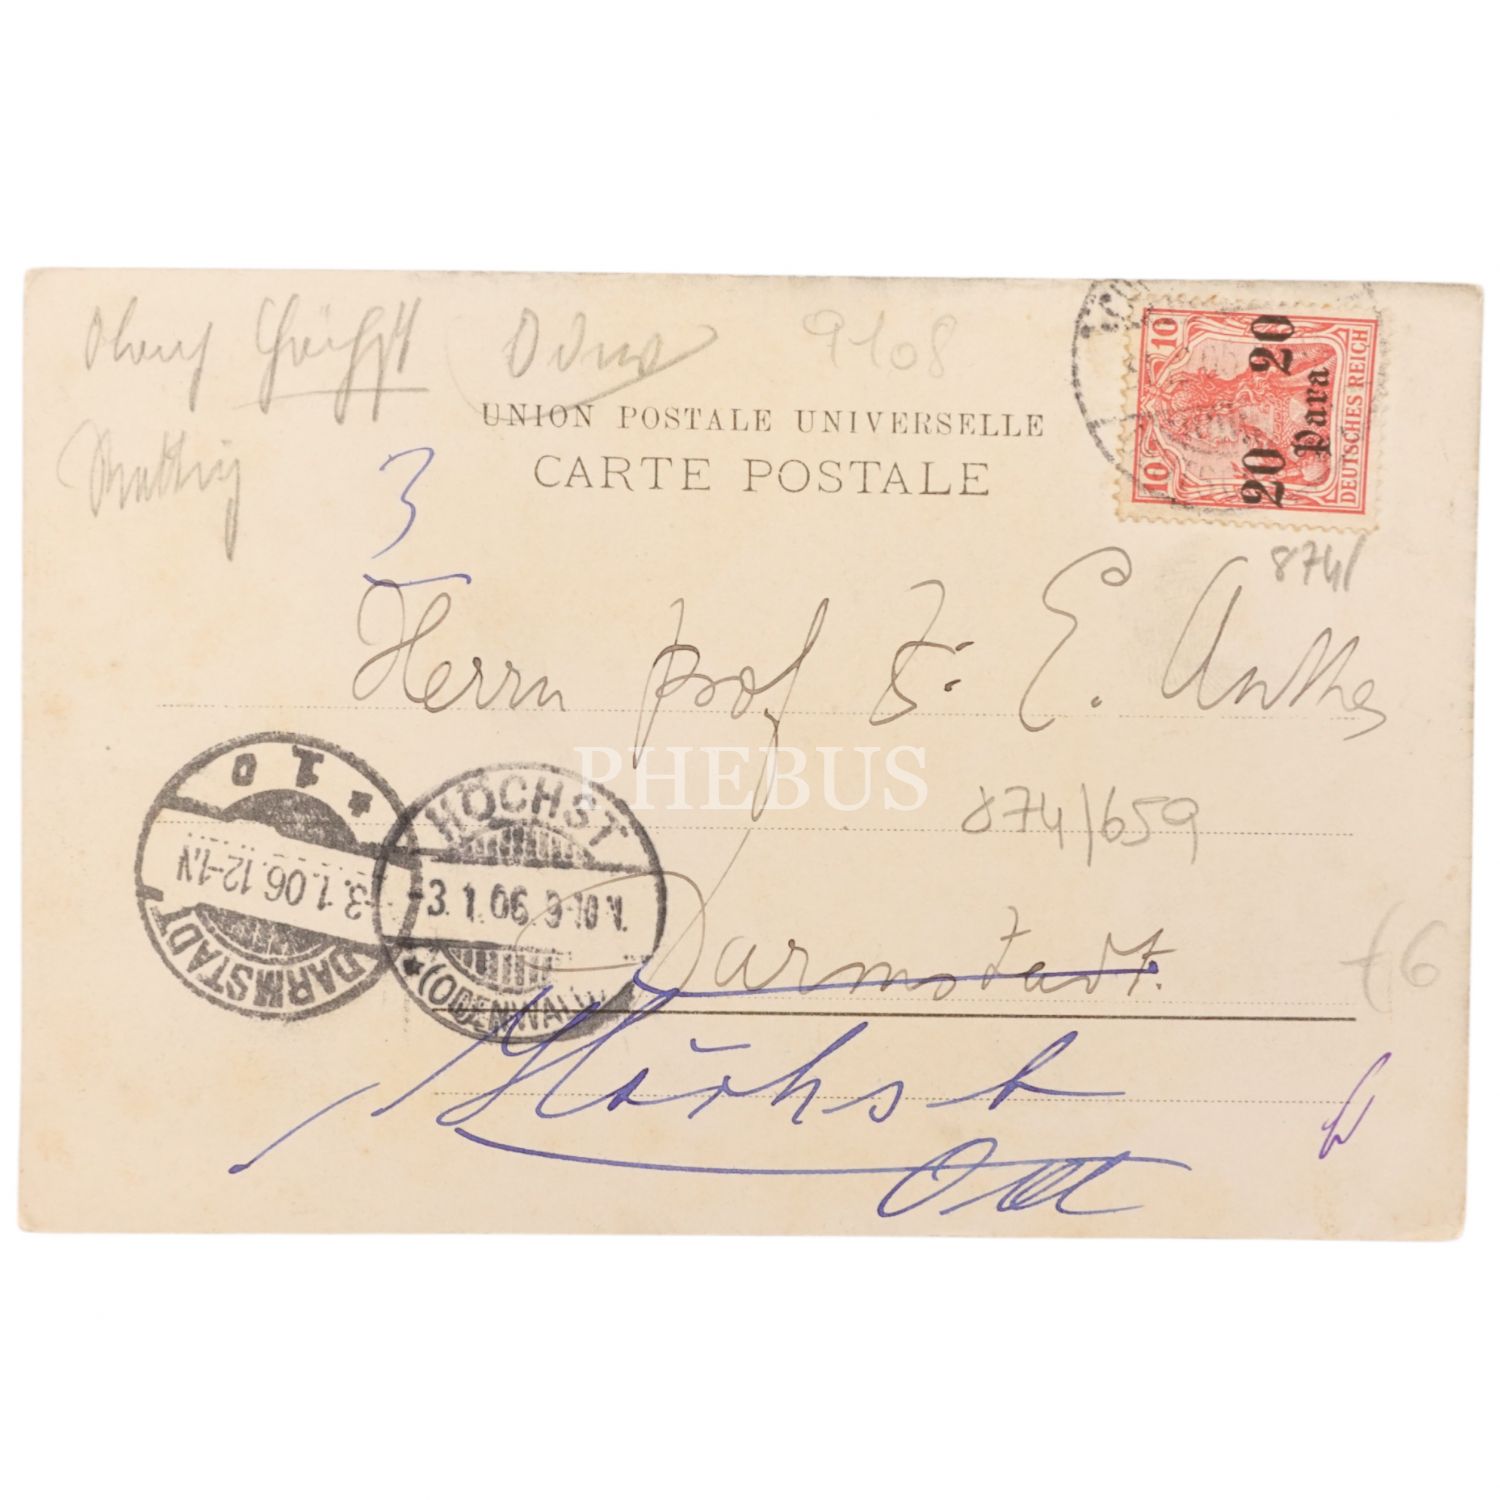 Höchst
Odw
9108
UNION POSTALE UNIVERSELLE
CARTE POSTALE
10 10
20 20
Para
DEUTSCHES REICH
3
874/
Herrn Prof Dr. E. Anthes
PHEBUS
874/659
Darmstadt.
Höchst
DARMSTADT
-3.1.06.12-1.N
* 1 D
HÖCHST
-3.1.06.9-10 V.
*(ODENWALD)